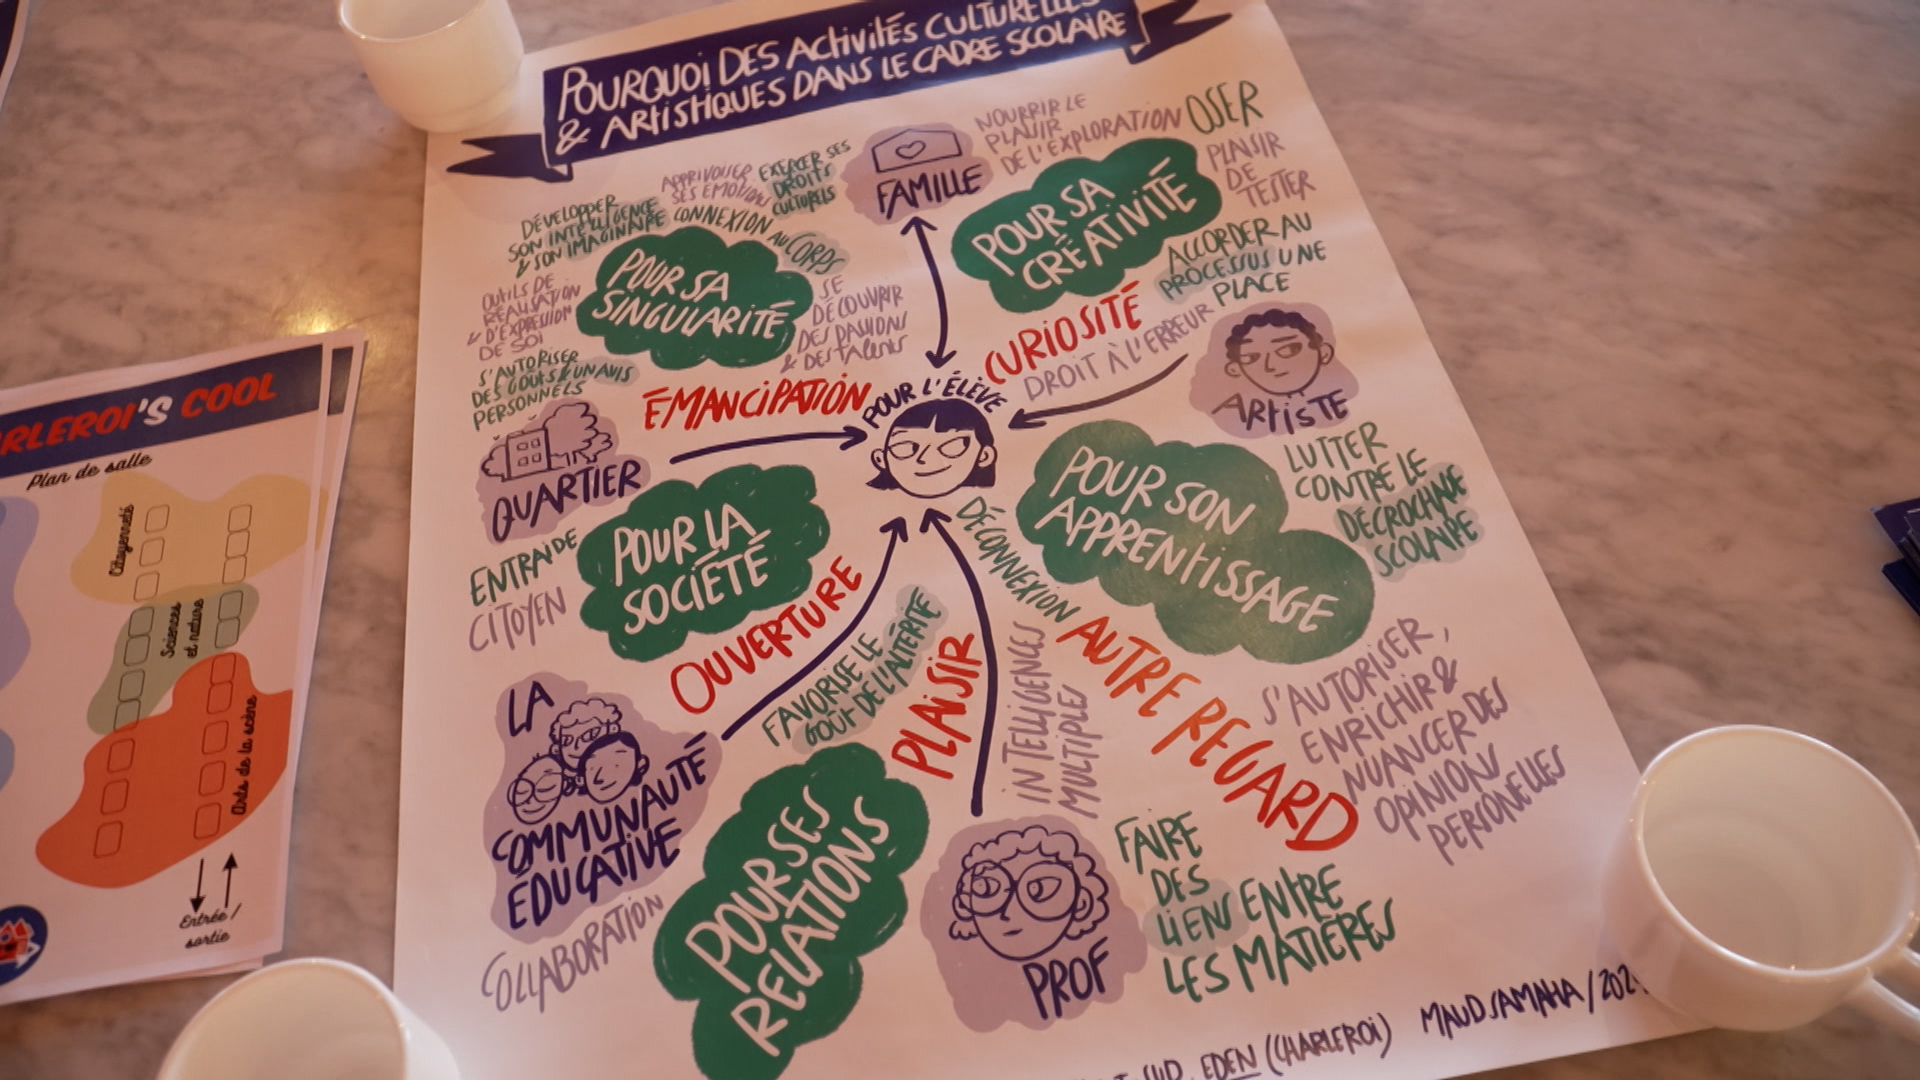 POURQUOI DES ACTIVITÉS CULTURELLES
& ARTISTIQUES DANS LE CADRE SCOLAIRE
DÉVELOPPER
SON INTELLIGENCE
& SON IMAGINAIRE
APPRIVOISER
SES EMOTIONS
EXERCER SES
DROITS
CULTURELS
CONNEXION AU CORPS
OUTILS DE
RÉALISATION
& D'EXPRESSION
DE SOI
POUR SA
SINGULARITÉ
SE
DÉCOUVRIR
DES PASSIONS
& DES TALENTS
S'AUTORISER
DES GOÛTS & UN AVIS
PERSONNELS
ÉMANCIPATION
FAMILLE
NOURRIR LE
PLAISIR
DE L'EXPLORATION
OSER
PLAISIR
DE
TESTER
POUR SA
CRÉATIVITÉ
ACCORDER AU
PROCESSUS UNE
PLACE
CURIOSITÉ
DROIT À L'ERREUR
ARTISTE
POUR L'ÉLÈVE
QUARTIER
ENTRAIDE
CITOYEN
POUR LA
SOCIÉTÉ
OUVERTURE
POUR SON
APPRENTISSAGE
LUTTER
CONTRE LE
DÉCROCHAGE
SCOLAIRE
DÉCONNEXION
AUTRE REGARD
S'AUTORISER,
ENRICHIR &
NUANCER DES
OPINIONS
PERSONELLES
INTELLIGENCES
MULTIPLES
LA
COMMUNAUTÉ
ÉDUCATIVE
COLLABORATION
FAVORISE LE
GOÛT DE L'ALTÉRITÉ
PLAISIR
POUR SES
RELATIONS
PROF
FAIRE
DES
LIENS ENTRE
LES MATIÈRES
SUD, EDEN (CHARLEROI) MAUD SAMAHA /
RLEROI'S COOL
Plan de salle
Citoyenneté
Sciences
et nature
Arts de la scène
Entrée /
sortie